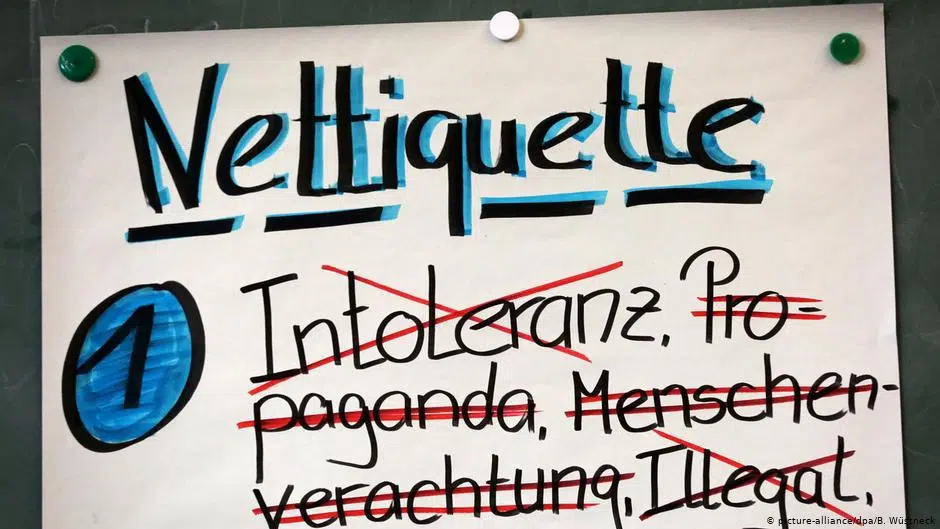 Nettiquette
1 Intoleranz, Pro-
paganda, Menschen-
verachtung, Illegal,
© picture-alliance/dpa/B. Wüstneck